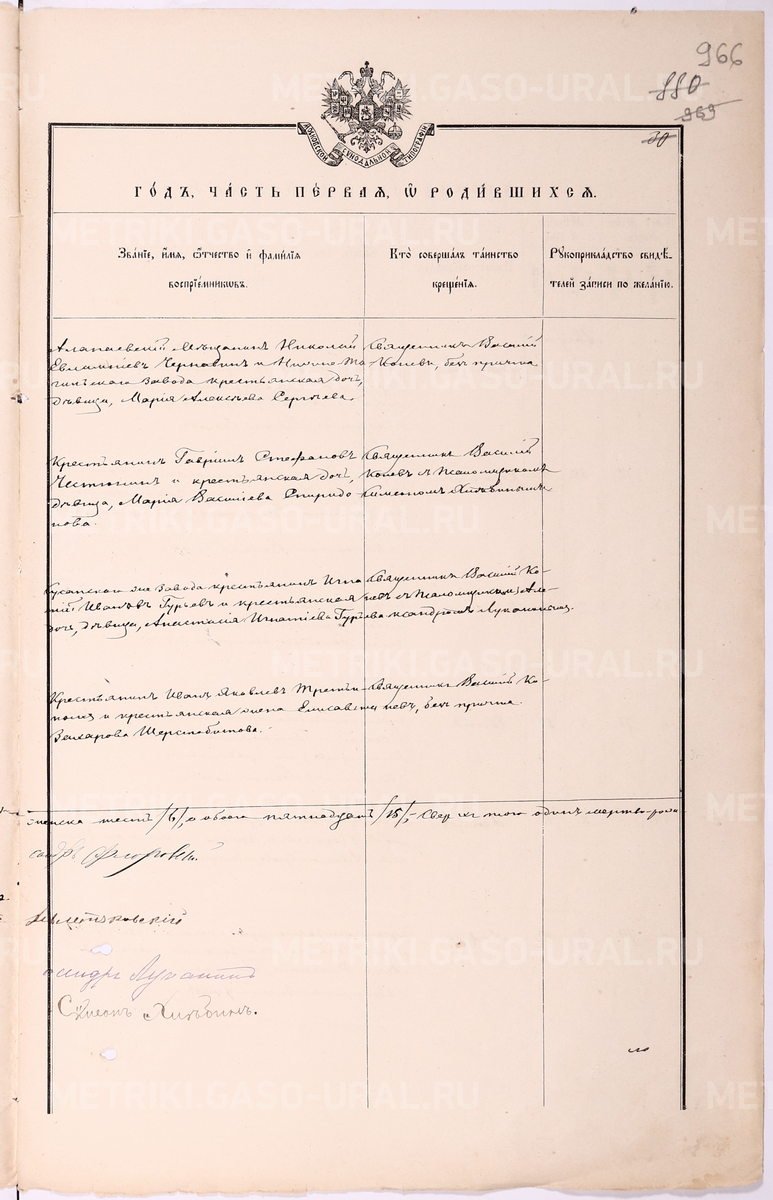 966
880
969
30
МОСКОВСКОЙ СѴНОДАЛЬНОЙ ТИПОГРАФІИ
ГО́ДЪ, ЧА́СТЬ ПЕ́РВАЯ, Ѡ҆ РОДИ́ВШИХСЯ.
Зва́нїе, и҆́мя, ѻ҆́тчество и҆ фами́лїя
воспрїе́мникѡвъ.
Кто̀ соверша́лъ та́инство
креще́нїя.
Рꙋкоприкла́дство свидѣ́-
телей за́писи по жела́нїю.
Алапаевскій Мѣщанинъ Николай
Евлампіевъ Чернавинъ и Нижне Та-
гильскаго завода крестьянская дочь,
дѣвица, Марія Алексѣева Сергѣева.
Священникъ Василій
Копевъ, безъ причта
Крестьянинъ Гавріилъ Стефановъ
Честюнинъ и крестьянская дочь,
дѣвица, Марія Василіева Спиридо
нова.
Священникъ Василій
Копевъ съ Псаломщикомъ
Симеономъ Хлѣбинымъ
завода крестьянинъ Игна
тій Ивановъ Гурьевъ и крестьянская
дочь, дѣвица, Анастасія Игнатіева Гурьева
Священникъ Василій Ко-
певъ съ Псаломщикомъ Але-
ксандромъ
Крестьянинъ Иванъ Яковлевъ Третья-
и крестьянская жена Елисавета
Захарова Шерстобитова.
Священникъ Василій Ко-
певъ, безъ причта.
женска шесть /6/, а обоего пятнадцать /15/, сверхъ того одинъ мертво-рож
сандръ
Симеонъ Хлѣбинъ.
METRIKI.GASO-URAL.RU